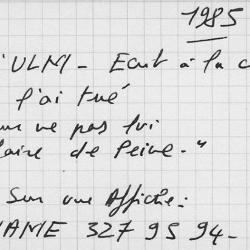 1985
'ULM - Ecrit à la c
j'ai tué
ur ne pas lui
laire de Peine. "
Sur une Affiche :
NAME 327 95 94 -